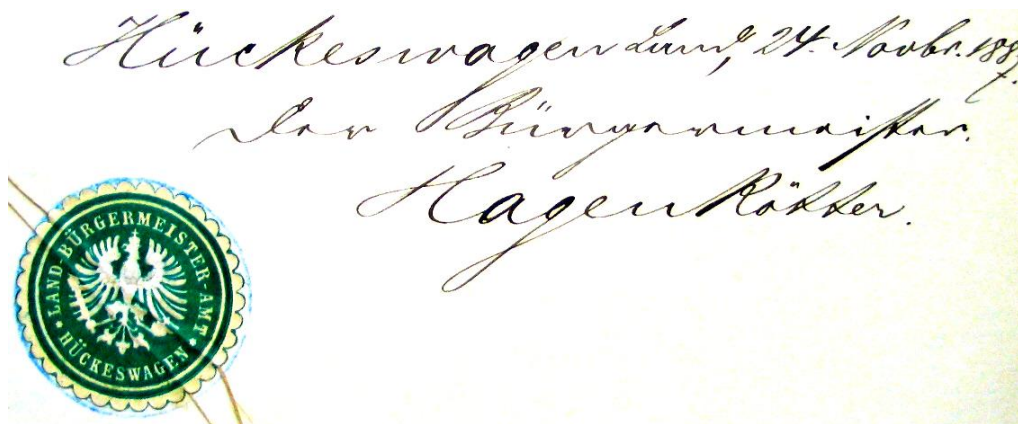 Hückeswagen Land, 24. Novbr. 1887.
Der Bürgermeister.
Hagenkötter.
LAND-BÜRGERMEISTER-AMT
* HÜCKESWAGEN *